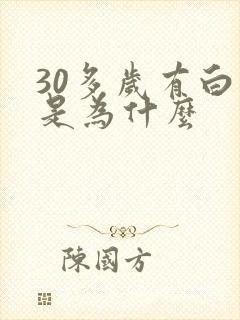 30多歲有白
是為什麼
陳國方